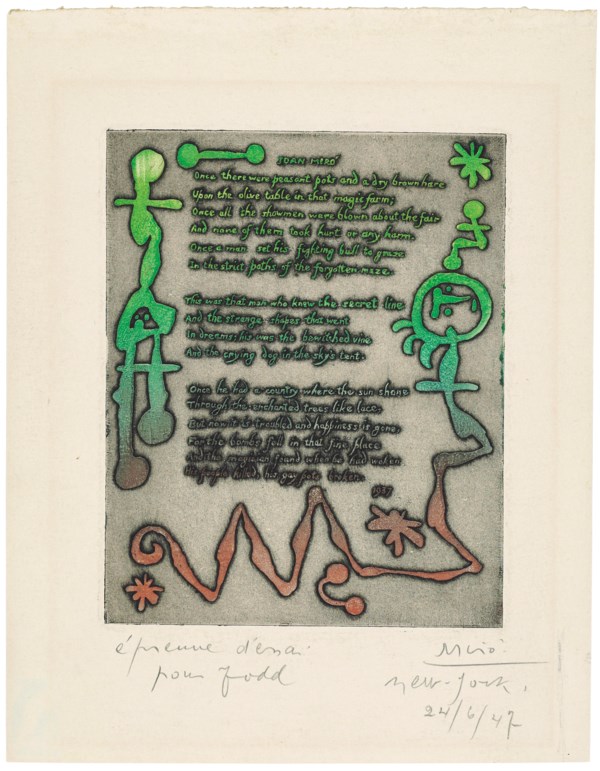 JOAN MIRÓ
Once there were peasant pots and a dry brown hare
Upon the olive table in that magic farm;
Once all the showmen were blown about the fair
And none of them took hurt or any harm.
Once a man set his fighting bull to graze
In the strict paths of the forgotten maze.
This was that man who knew the secret line
And the strange shapes that went
In dreams: his was the bewitched vine
And the crying dog in the sky's tent.
Once he had a country where the sun shone
Through the enchanted trees like lace.
But now it is troubled and happiness is gone.
For the bombs fell in that fine place
And the magician found when he had woken
His people killed, his gay pots broken.
1937
épreuve d'essai
pour Todd
Miró.
New-York,
24/6/47